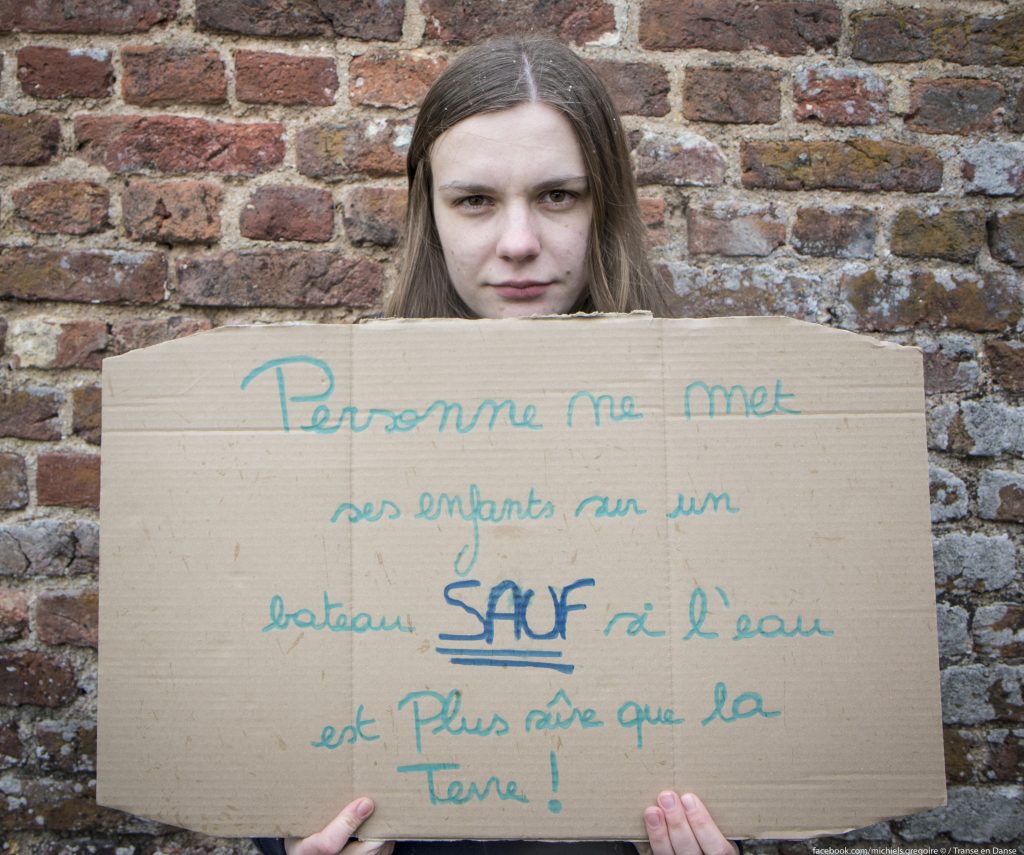 Personne ne met
ses enfants sur un
bateau SAUF si l'eau
est Plus sûre que la
Terre !
facebook.com/michiels.gregoire © / Transe en Danse